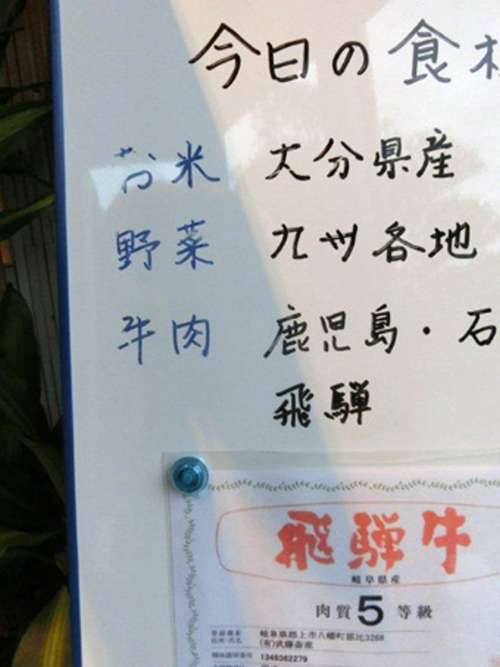 今日の食
お米 大分県産
野菜 九州各地
牛肉 鹿児島・石
飛騨
飛騨牛
岐阜県産
肉質5等級
岐阜県郡上市八幡町那比3268
(有)武藤畜産
1349382279